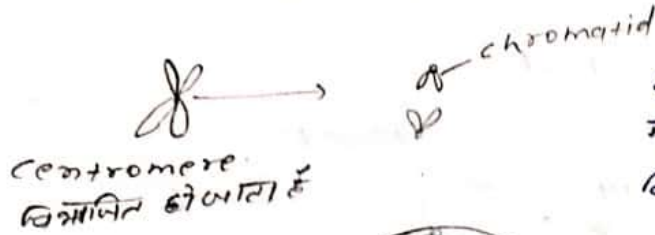 chromatid
centromere
विभाजित हो जाता है